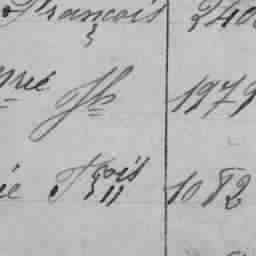 François 240
Jh 1979
Fçois 1082